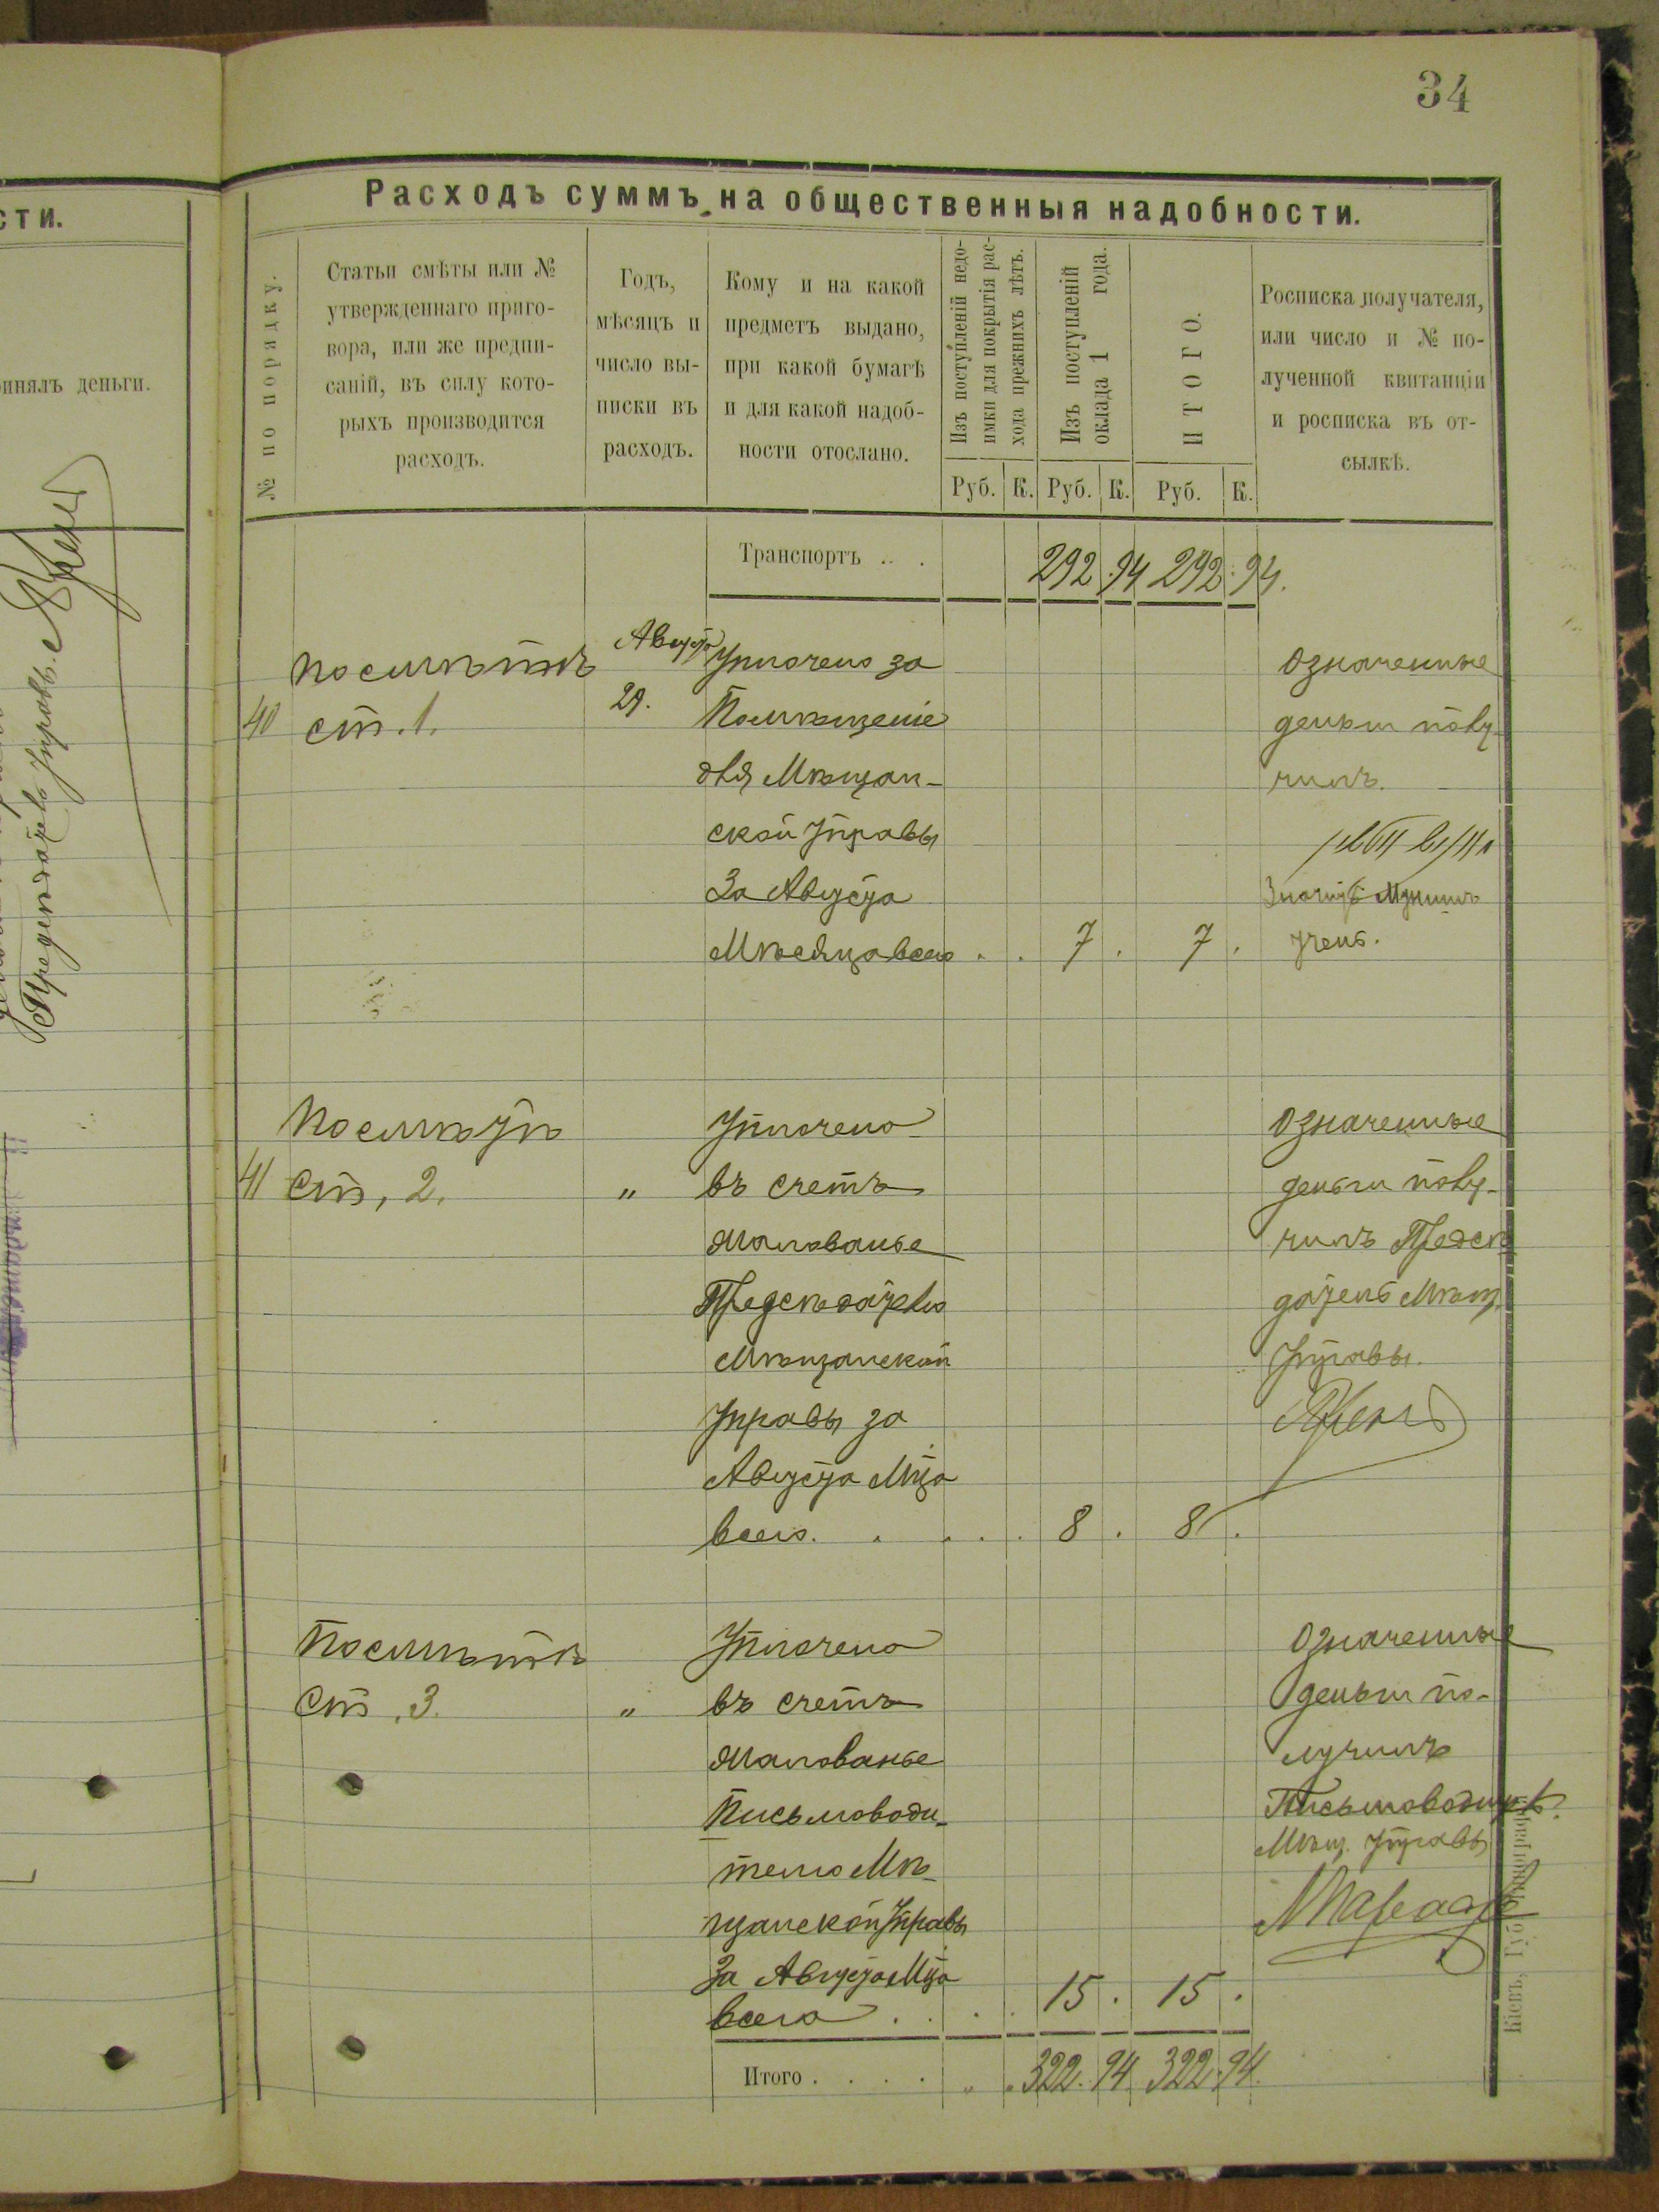 34
сти.
инялъ деньги.
Предсѣдатель Управы
Расходъ суммъ на общественныя надобности.
№ по порядку.
Статьи смѣты или №
утвержденнаго приго-
вора, или же предпи-
саній, въ силу кото-
рыхъ производится
расходъ.
Годъ,
мѣсяцъ и
число вы-
писки въ
расходъ.
Кому и на какой
предметъ выдано,
при какой бумагѣ
и для какой надоб-
ности отослано.
Изъ поступленій недо-
имки для покрытія рас-
хода прежнихъ лѣтъ.
Изъ поступленій
оклада 1 года.
ИТОГО.
Росписка получателя,
или число и № по-
лученной квитанціи
и росписка въ от-
сылкѣ.
Руб. К. Руб. К. Руб. К.
Транспортъ . . . 292 94 292 94.
По смѣтѣ
40 ст. 1.
Августа
29.
Уплочено за
Помѣщеніе
для Мѣщан-
ской Управы
За Августа
Мѣсяца всего . . 7 . 7 .
Означенные
деньги полу-
чилъ.
По смѣтѣ
41 ст, 2.
"
Уплочено
въ счетъ
жалованье
Предсѣдателю
Мѣщанской
Управы за
Августа Мца
всего. . . . 8 . 8 .
Означенные
деньги полу-
чилъ Предсѣ
датель Мѣщ.
Управы.
По смѣтѣ
Ст. 3.
"
Уплочено
въ счетъ
жалованье
Письмоводи-
телю Мѣ-
щанской Управы
За Августа Мца
всего . . . . 15 . 15 .
Означенные
деньги по-
лучилъ
Письмоводитель
Мѣщ. Управы
Итого . . . . " " 322. 94 322. 94.
Кіевъ, Губ.